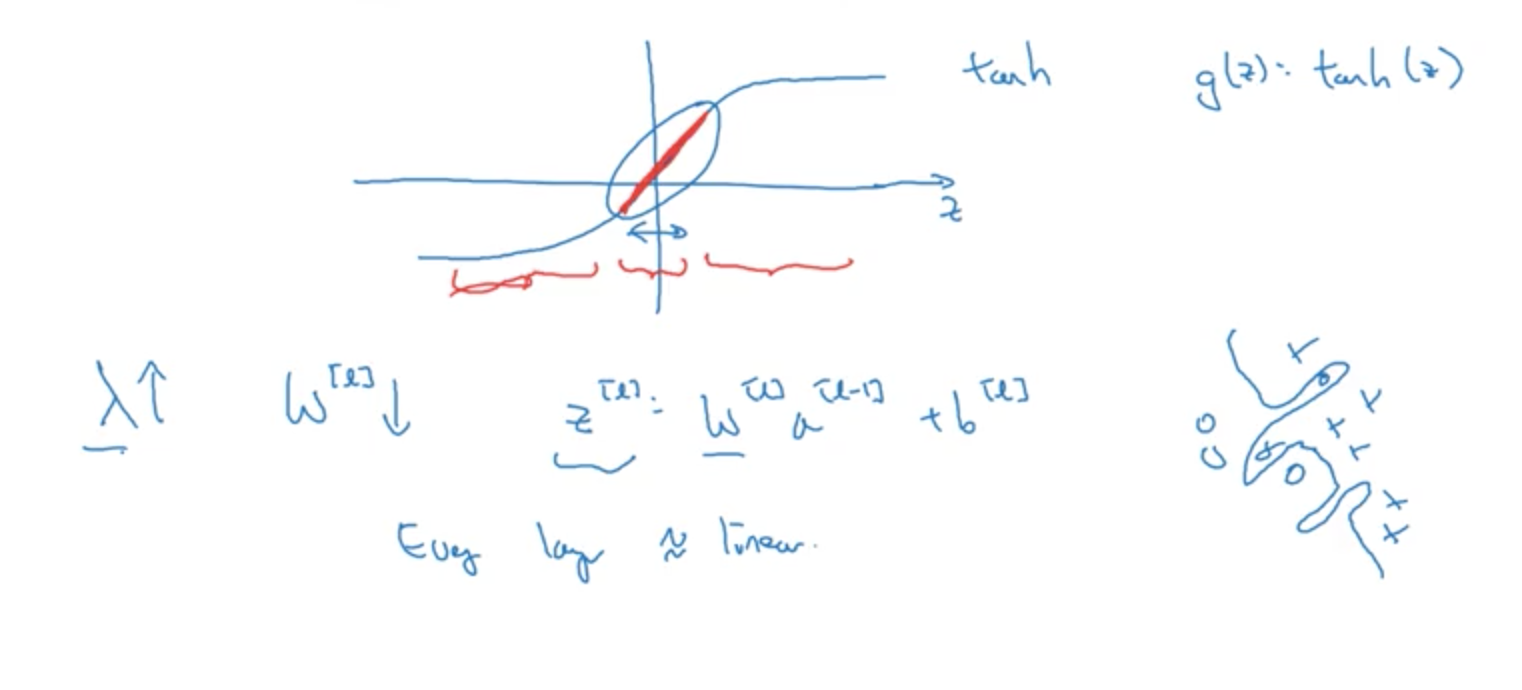 tanh
g(z) = tanh(z)
z
λ↑ W^[l]↓ z^[l] = W^[l] a^[l-1] + b^[l]
Every layer ≈ linear.